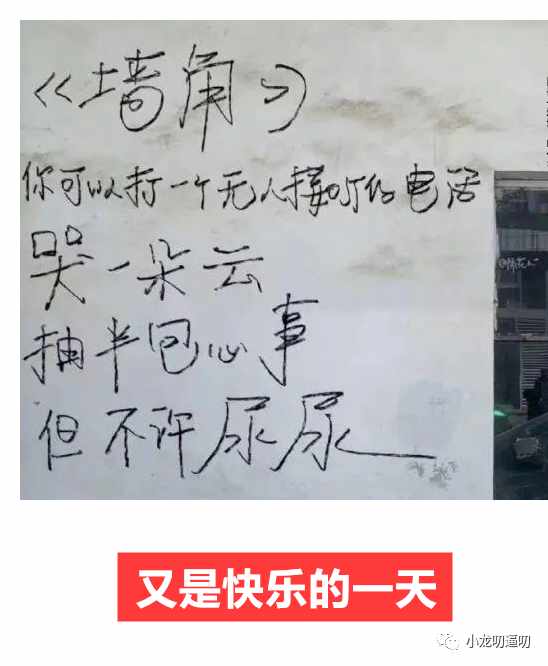 《墙角》
你可以打一个无人接听的电话
哭一朵云
抽半包心事
但不许尿尿
又是快乐的一天
小龙叨逼叨